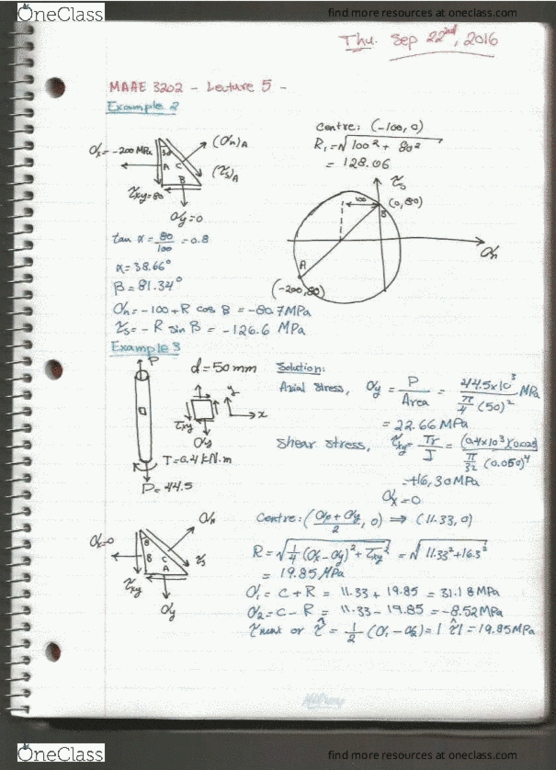 OneClass
find more resources at oneclass.com
Thu. Sep 22nd, 2016
MAAE 3202 - Lecture 5 -
Example 2
σx = -200 MPa
(σn)A
(τs)A
A
C
B
τxy=80
σy=0
Centre: (-100, 0)
R1 = √100² + 80²
= 128.06
τs
100
(0,80)
B
σn
A
(-200,80)
tan α = 80/100 = 0.8
α = 38.66°
B = 81.34°
σn = -100 + R cos B = -80.7 MPa
τs = -R sin B = -126.6 MPa
Example 3
P
d = 50 mm
y
x
τxy
σy
T = 0.4 kN.m
P = 44.5
Solution:
Axial stress, σy = P/Area = 44.5x10³ / π/4 (50)² MPa
= 22.66 MPa
Shear stress, τxy = Tr/J = (0.4x10³) / π/32 (0.050)⁴
= +16.30 MPa
σx = 0
σx=0
σn
B
B
C
A
τs
τxy
σy
Centre: (σx+σy/2, 0) ⇒ (11.33, 0)
R = √1/4 (σx-σy)² + τxy² = √11.33² + 16.3²
= 19.85 MPa
σ1 = C + R = 11.33 + 19.85 = 31.18 MPa
σ2 = C - R = 11.33 - 19.85 = -8.52 MPa
or τ̂ = 1/2 (σ1 - σ2) = | τ̂ | = 19.85 MPa
Hilroy
OneClass
find more resources at oneclass.com